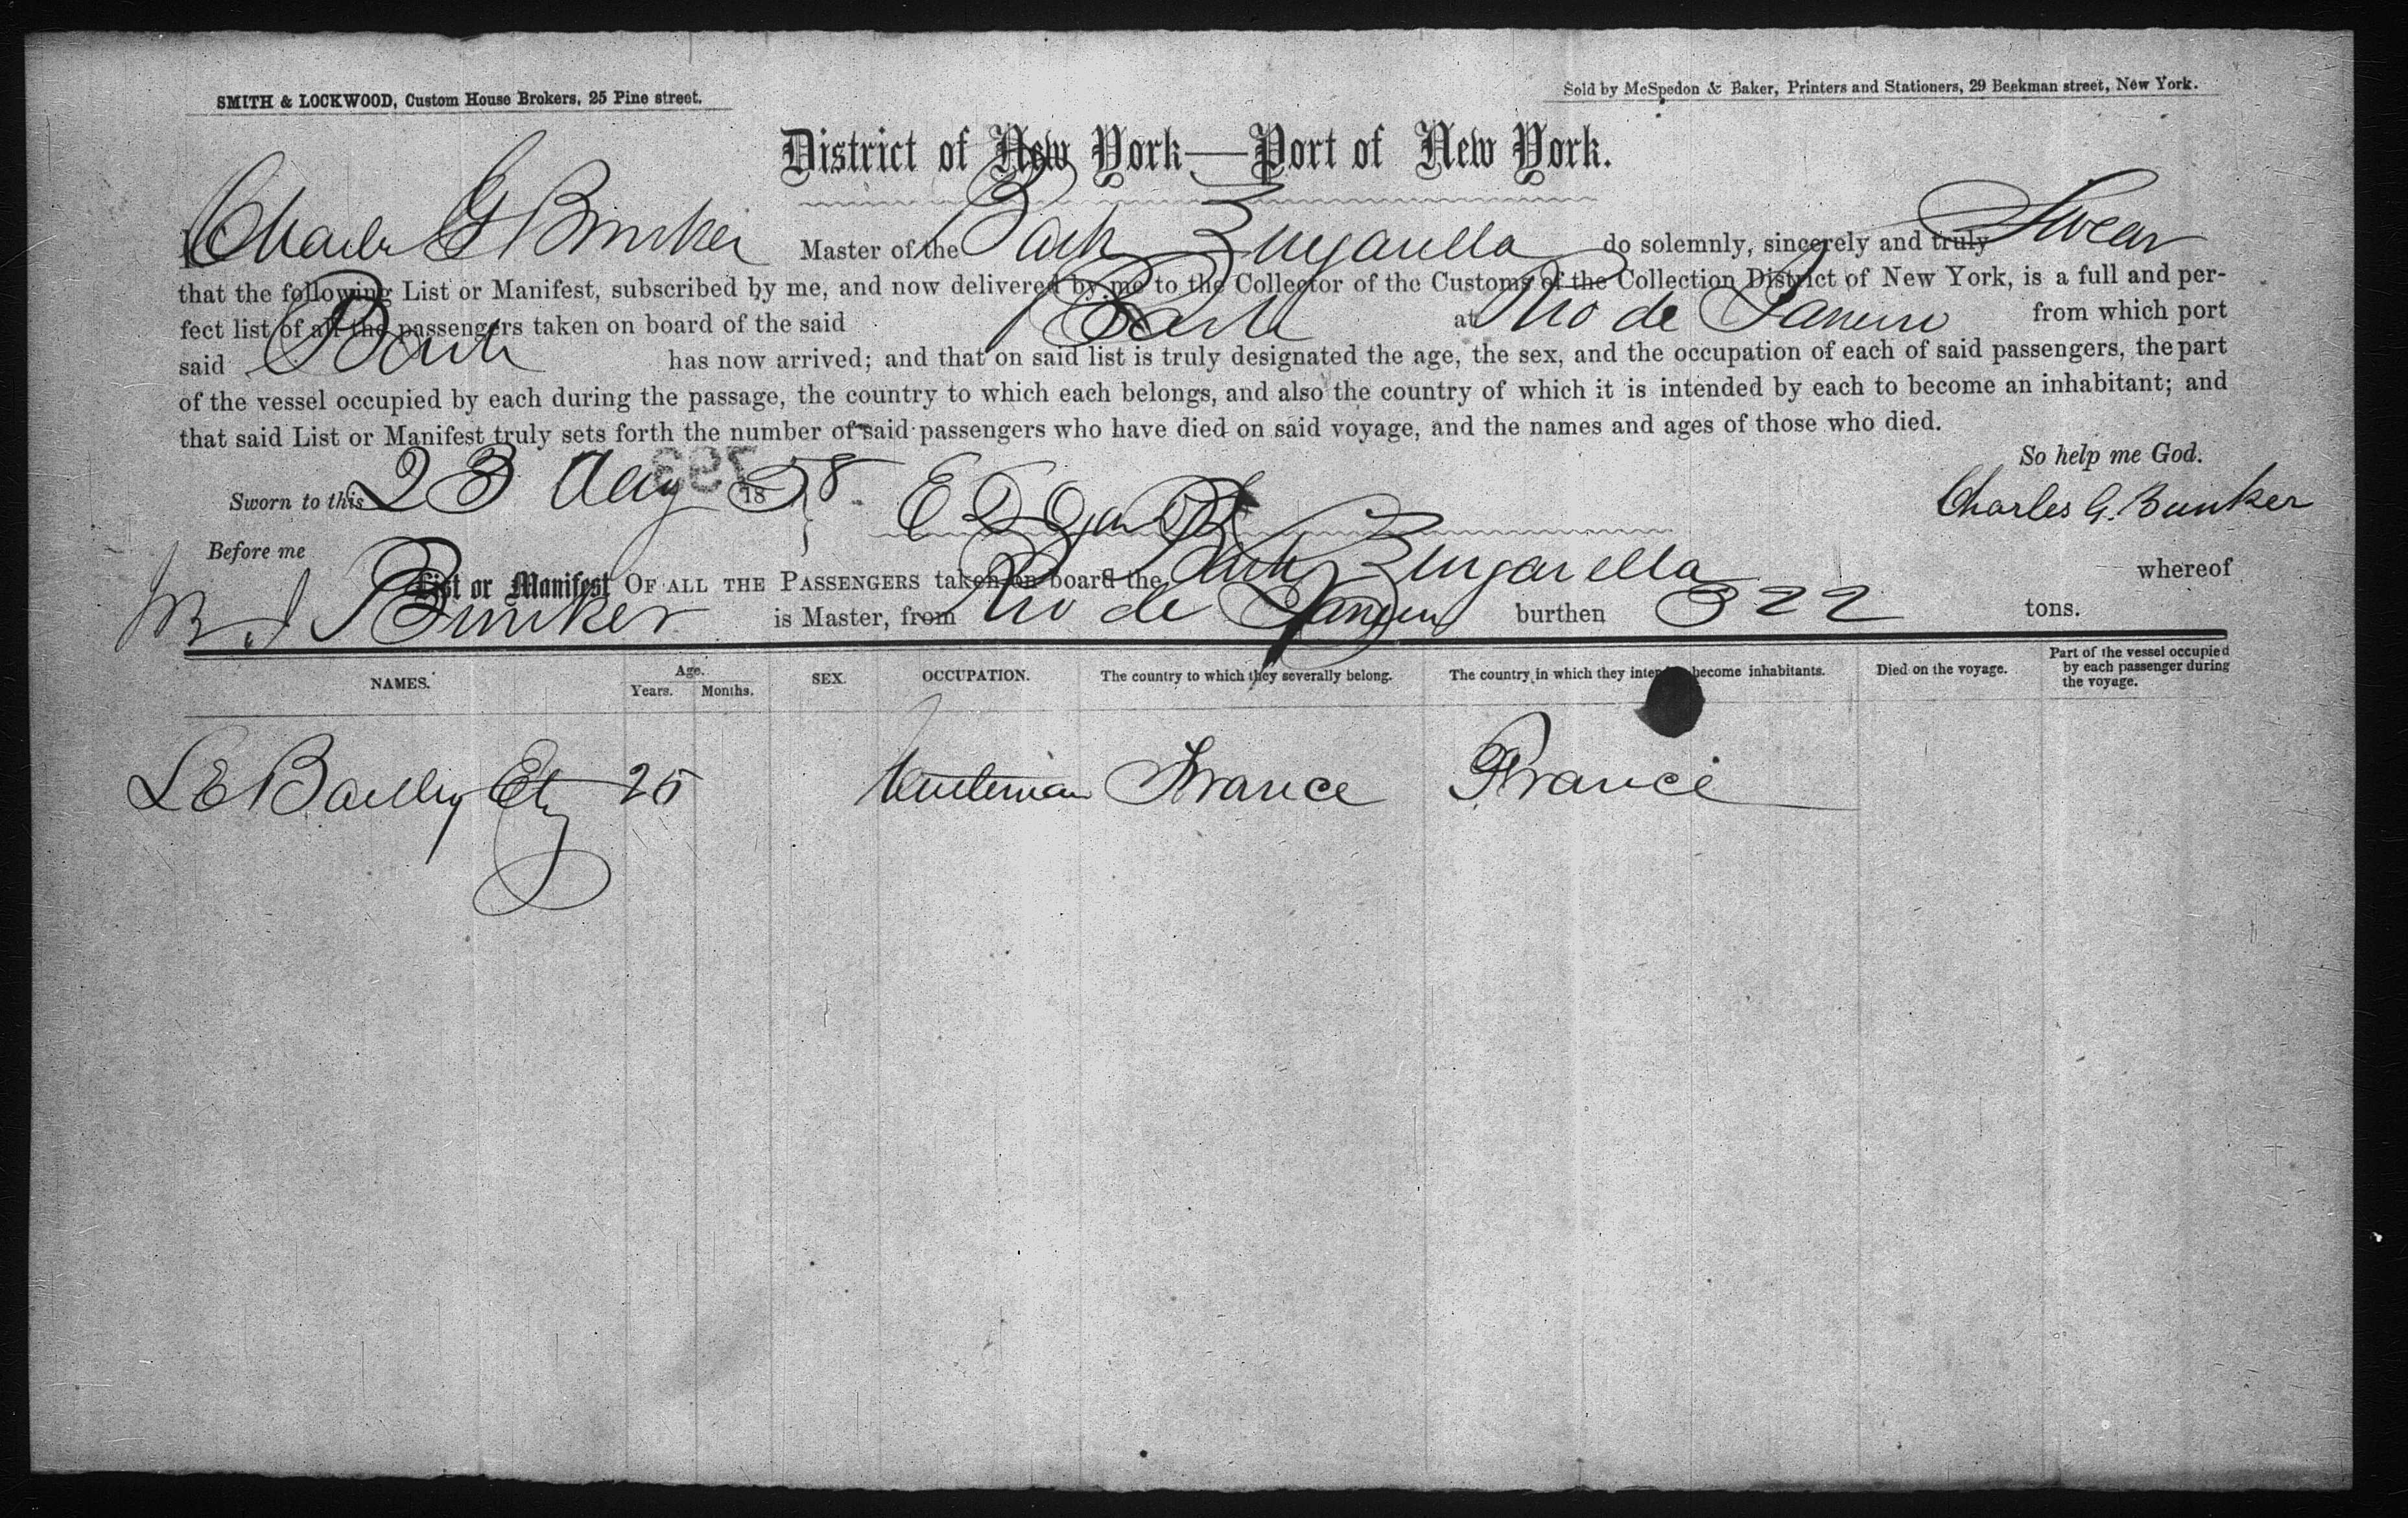 SMITH & LOCKWOOD, Custom House Brokers, 25 Pine street.
Sold by McSpedon & Baker, Printers and Stationers, 29 Beekman street, New York.
District of New York—Port of New York.
I Charles G Bunker Master of the Bark Zingarella do solemnly, sincerely and truly Swear
that the following List or Manifest, subscribed by me, and now delivered by me to the Collector of the Customs of the Collection District of New York, is a full and per-
fect list of all the passengers taken on board of the said Bark at Rio de Janeiro from which port
said Bark has now arrived; and that on said list is truly designated the age, the sex, and the occupation of each of said passengers, the part
of the vessel occupied by each during the passage, the country to which each belongs, and also the country of which it is intended by each to become an inhabitant; and
that said List or Manifest truly sets forth the number of said passengers who have died on said voyage, and the names and ages of those who died.
So help me God.
Sworn to this 23 Aug 1858
Charles G. Bunker
Before me
List or Manifest OF ALL THE PASSENGERS taken on board the Bark Zingarella whereof
Bunker is Master, from Rio de Janeiro burthen 322 tons.
NAMES. Age. Years. Months. SEX. OCCUPATION. The country to which they severally belong. The country in which they intend to become inhabitants. Died on the voyage. Part of the vessel occupied by each passenger during the voyage.
25 Gentleman France France